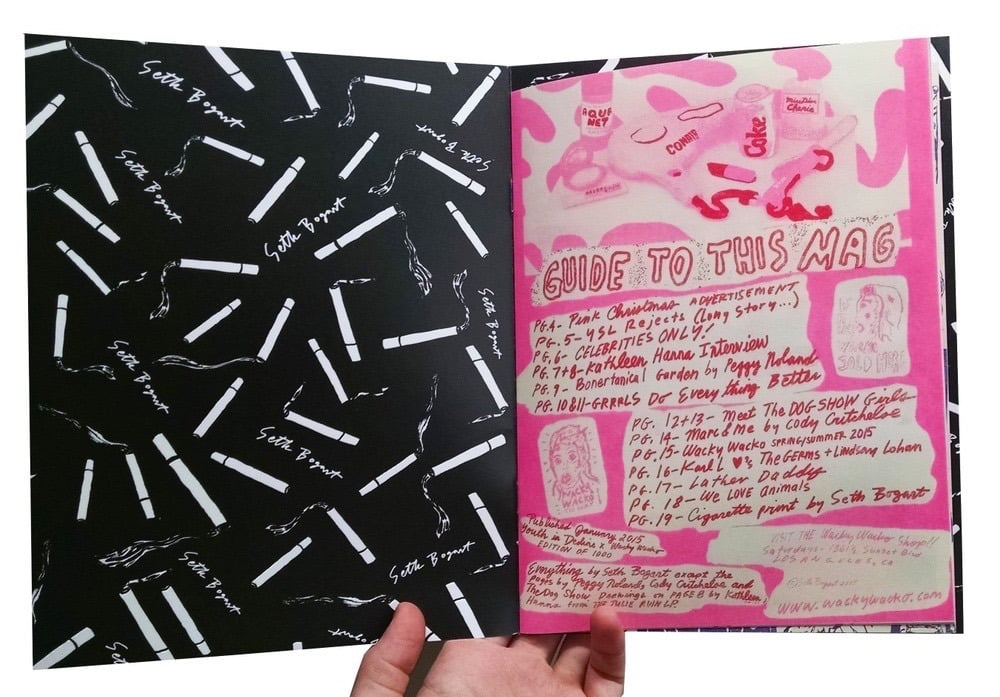 Seth Bogart
Seth Bogart
Seth Bogart
Seth Bogart
Seth Bogart
Seth Bogart
Seth Bogart
Seth Bogart
Seth Bogart
AQUA
NET
COMATO
Coke
GUIDE TO THIS MAG
PG.4- Pink Christmas ADVERTISEMENT
PG. 5- YSL Rejects (Long Story...)
PG. 6- CELEBRITIES ONLY!
PG. 7+8- Kathleen Hanna Interview
PG. 9 - Bonertanical Garden by Peggy Noland
PG. 10&11-GRRRLS Do Every thing Better
SOLD HERE
PG. 12+13- Meet The DOG-SHOW Girls
PG. 14- Marc & Me by Cody Critcheloe
PG. 15- Wacky Wacko SPRING/SUMMER 2015
PG. 16- Karl L ♥'s The GERMS + Lindsay Lohan
PG. 17- Lather Daddy
PG. 18- We LOVE animals
PG. 19- Cigarette print by Seth Bogart
WACKY
WACKO
Published January 2015
Youth in Decline x Wacky Wacko
EDITION OF 1000
Everything by Seth Bogart except the
pages by Peggy Noland, Cody Critcheloe and
The Dog Show Drawings on PAGE 8 by Kathleen
Hanna from THE JULIE RUIN LP.
VISIT THE Wacky Wacko Shop!!
Saturdays - Sunset Blvd
LOS ANGELES, CA
©Seth Bogart
www.wackywacko.com